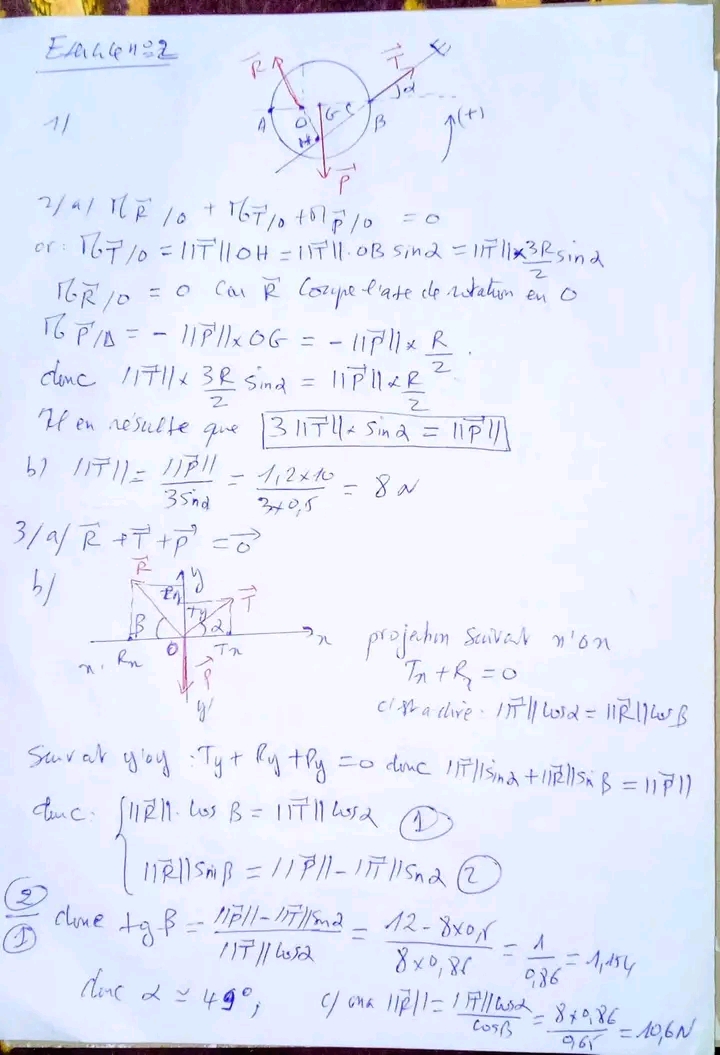 Exercice n°2
R⃗ T⃗ E
1/ A O G C B α (+)
H
P⃗
2/a/ M R⃗/o + M T⃗/o + M P⃗/o = 0
or : M T⃗/o = ||T⃗|| OH = ||T⃗||. OB sin α = ||T⃗|| × 3R/2 sin α
M R⃗/o = 0 Car R⃗ coupe l'axe de rotation en O
M P⃗/Δ = - ||P⃗|| × OG = - ||P⃗|| × R/2.
donc ||T⃗|| × 3R/2 sin α = ||P⃗|| × R/2
Il en résulte que 3 ||T⃗|| × sin α = ||P⃗||
b) ||T⃗|| = ||P⃗||/3 sin α = 1,2×10/3×0,5 = 8 N
3/a/ R⃗ + T⃗ + P⃗ = o⃗
b/ R⃗ y T⃗
Ry Ty
β α
x' Rx O Tx x
P⃗
y'
projection suivat x'ox
Tx + Rx = 0
c'st a dire . ||T⃗|| cos α = ||R⃗|| cos β
Suivat y'oy : Ty + Ry + Py = 0 donc ||T⃗|| sin α + ||R⃗|| sin β = ||P⃗||
donc : { ||R⃗||. cos β = ||T⃗|| cos α ①
||R⃗|| sin β = ||P⃗|| - ||T⃗|| sin α ②
②/① donc tg β = ||P⃗|| - ||T⃗|| sin α/||T⃗|| cos α = 12 - 8×0,5/8×0,86 = 1/0,86 = 1,154
donc α ≃ 49°, c/ ona ||R⃗|| = ||T⃗|| cos α/cos β = 8×0,86/0,65 = 10,6 N